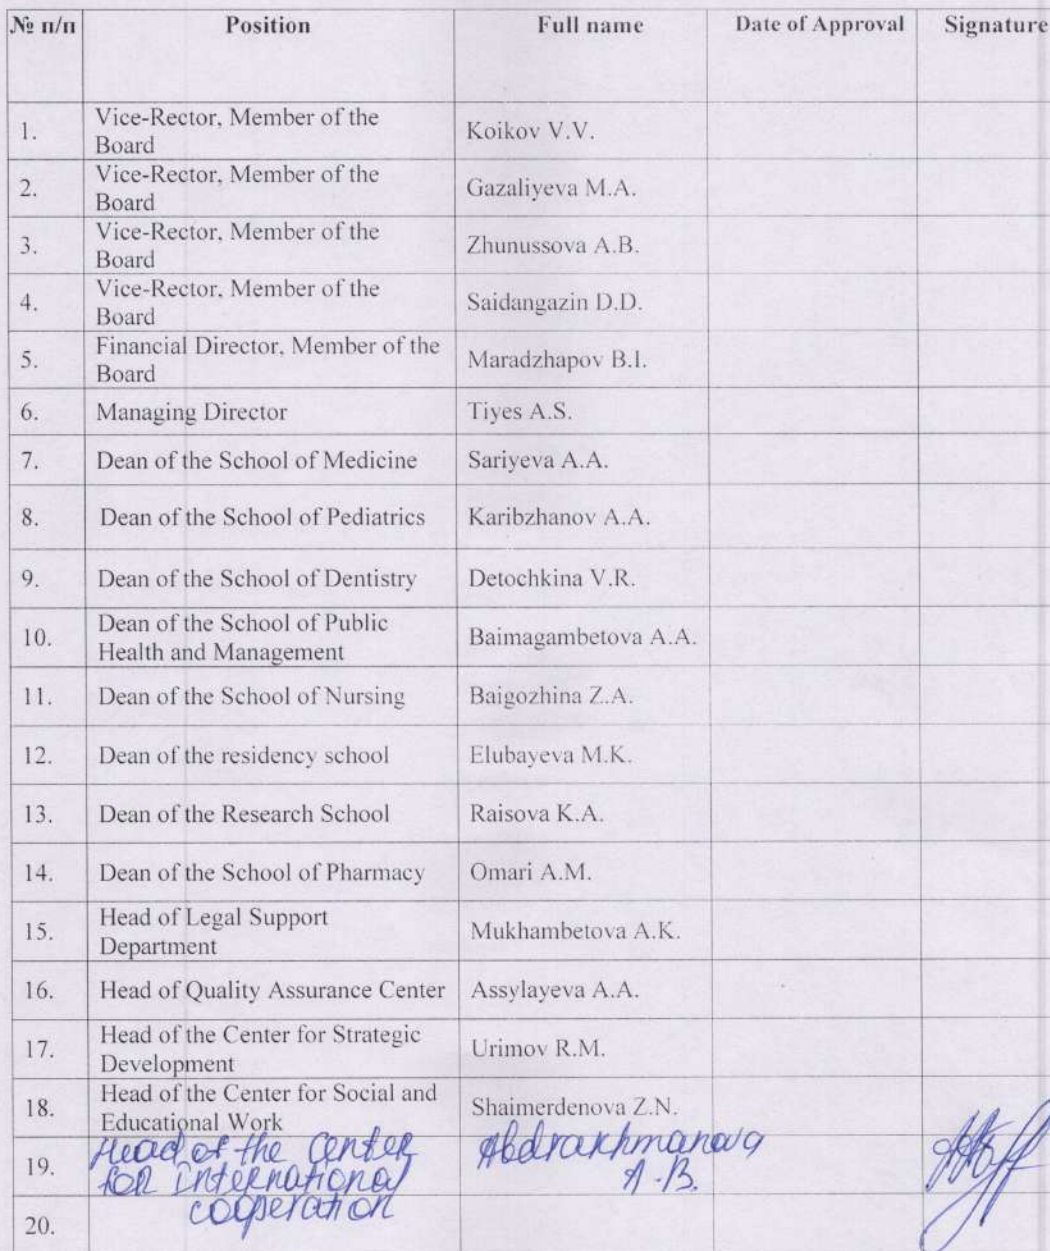 № п/п Position Full name Date of Approval Signature
1. Vice-Rector, Member of the Board Koikov V.V.
2. Vice-Rector, Member of the Board Gazaliyeva M.A.
3. Vice-Rector, Member of the Board Zhunussova A.B.
4. Vice-Rector, Member of the Board Saidangazin D.D.
5. Financial Director, Member of the Board Maradzhapov B.I.
6. Managing Director Tiyes A.S.
7. Dean of the School of Medicine Sariyeva A.A.
8. Dean of the School of Pediatrics Karibzhanov A.A.
9. Dean of the School of Dentistry Detochkina V.R.
10. Dean of the School of Public Health and Management Baimagambetova A.A.
11. Dean of the School of Nursing Baigozhina Z.A.
12. Dean of the residency school Elubayeva M.K.
13. Dean of the Research School Raisova K.A.
14. Dean of the School of Pharmacy Omari A.M.
15. Head of Legal Support Department Mukhambetova A.K.
16. Head of Quality Assurance Center Assylayeva A.A.
17. Head of the Center for Strategic Development Urimov R.M.
18. Head of the Center for Social and Educational Work Shaimerdenova Z.N.
19. Head of the Center for international cooperation Abdrakhmanova A.B.
20.